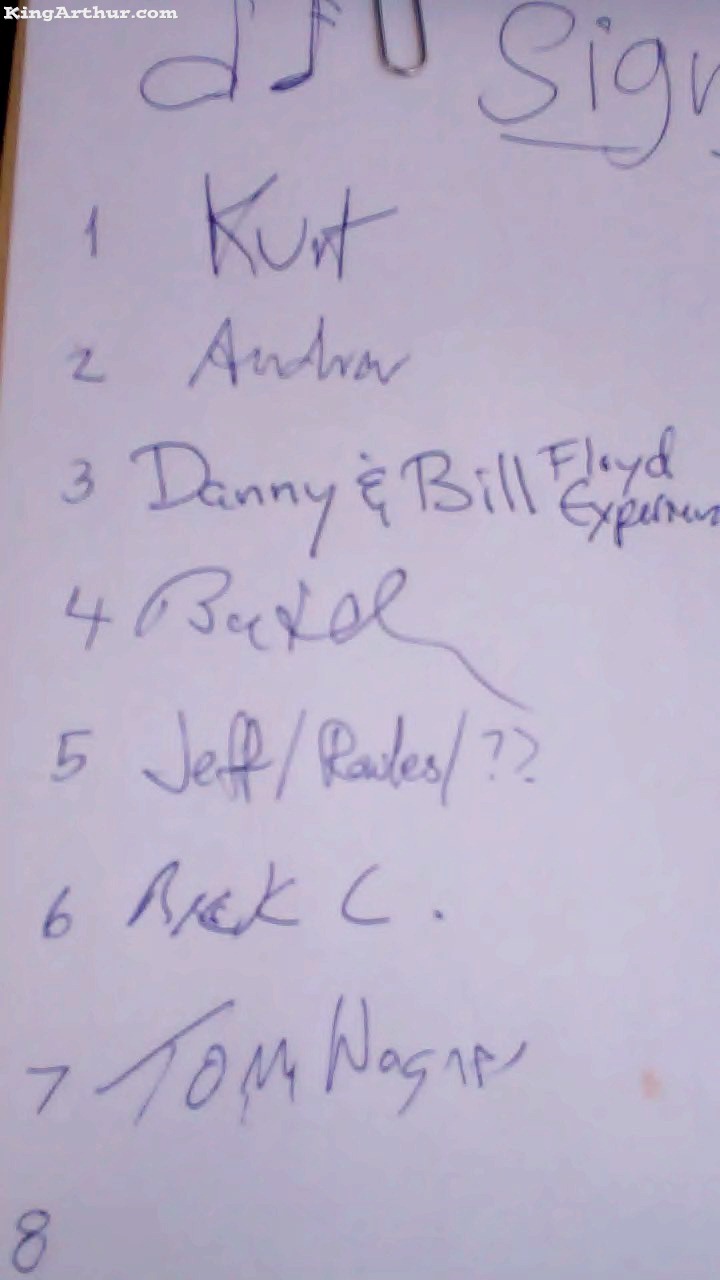 KingArthur.com
Sign
1 Kurt
2 Andrew
3 Danny & Bill Floyd
Experience
4
5 Jeff / / ??
6 Rick C.
7 Tom Wagner
8